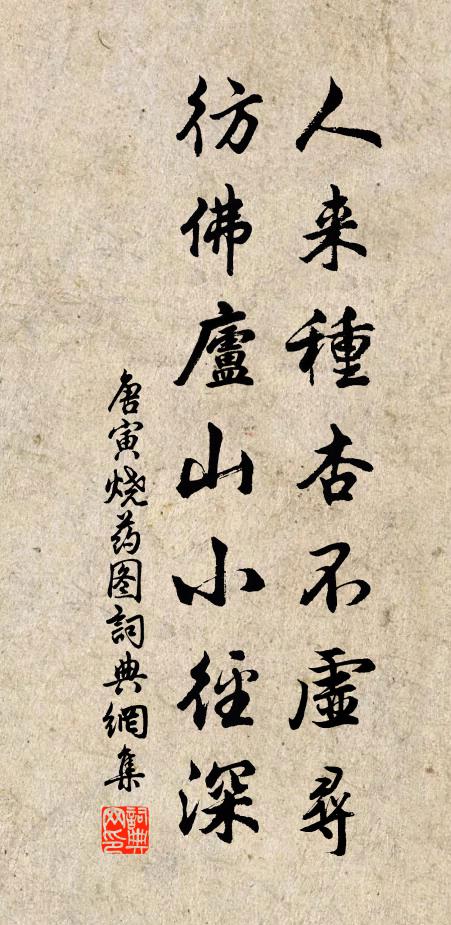 人来種杏不虚尋
彷佛廬山小徑深
唐寅烧药图詞典網集
詞典網印